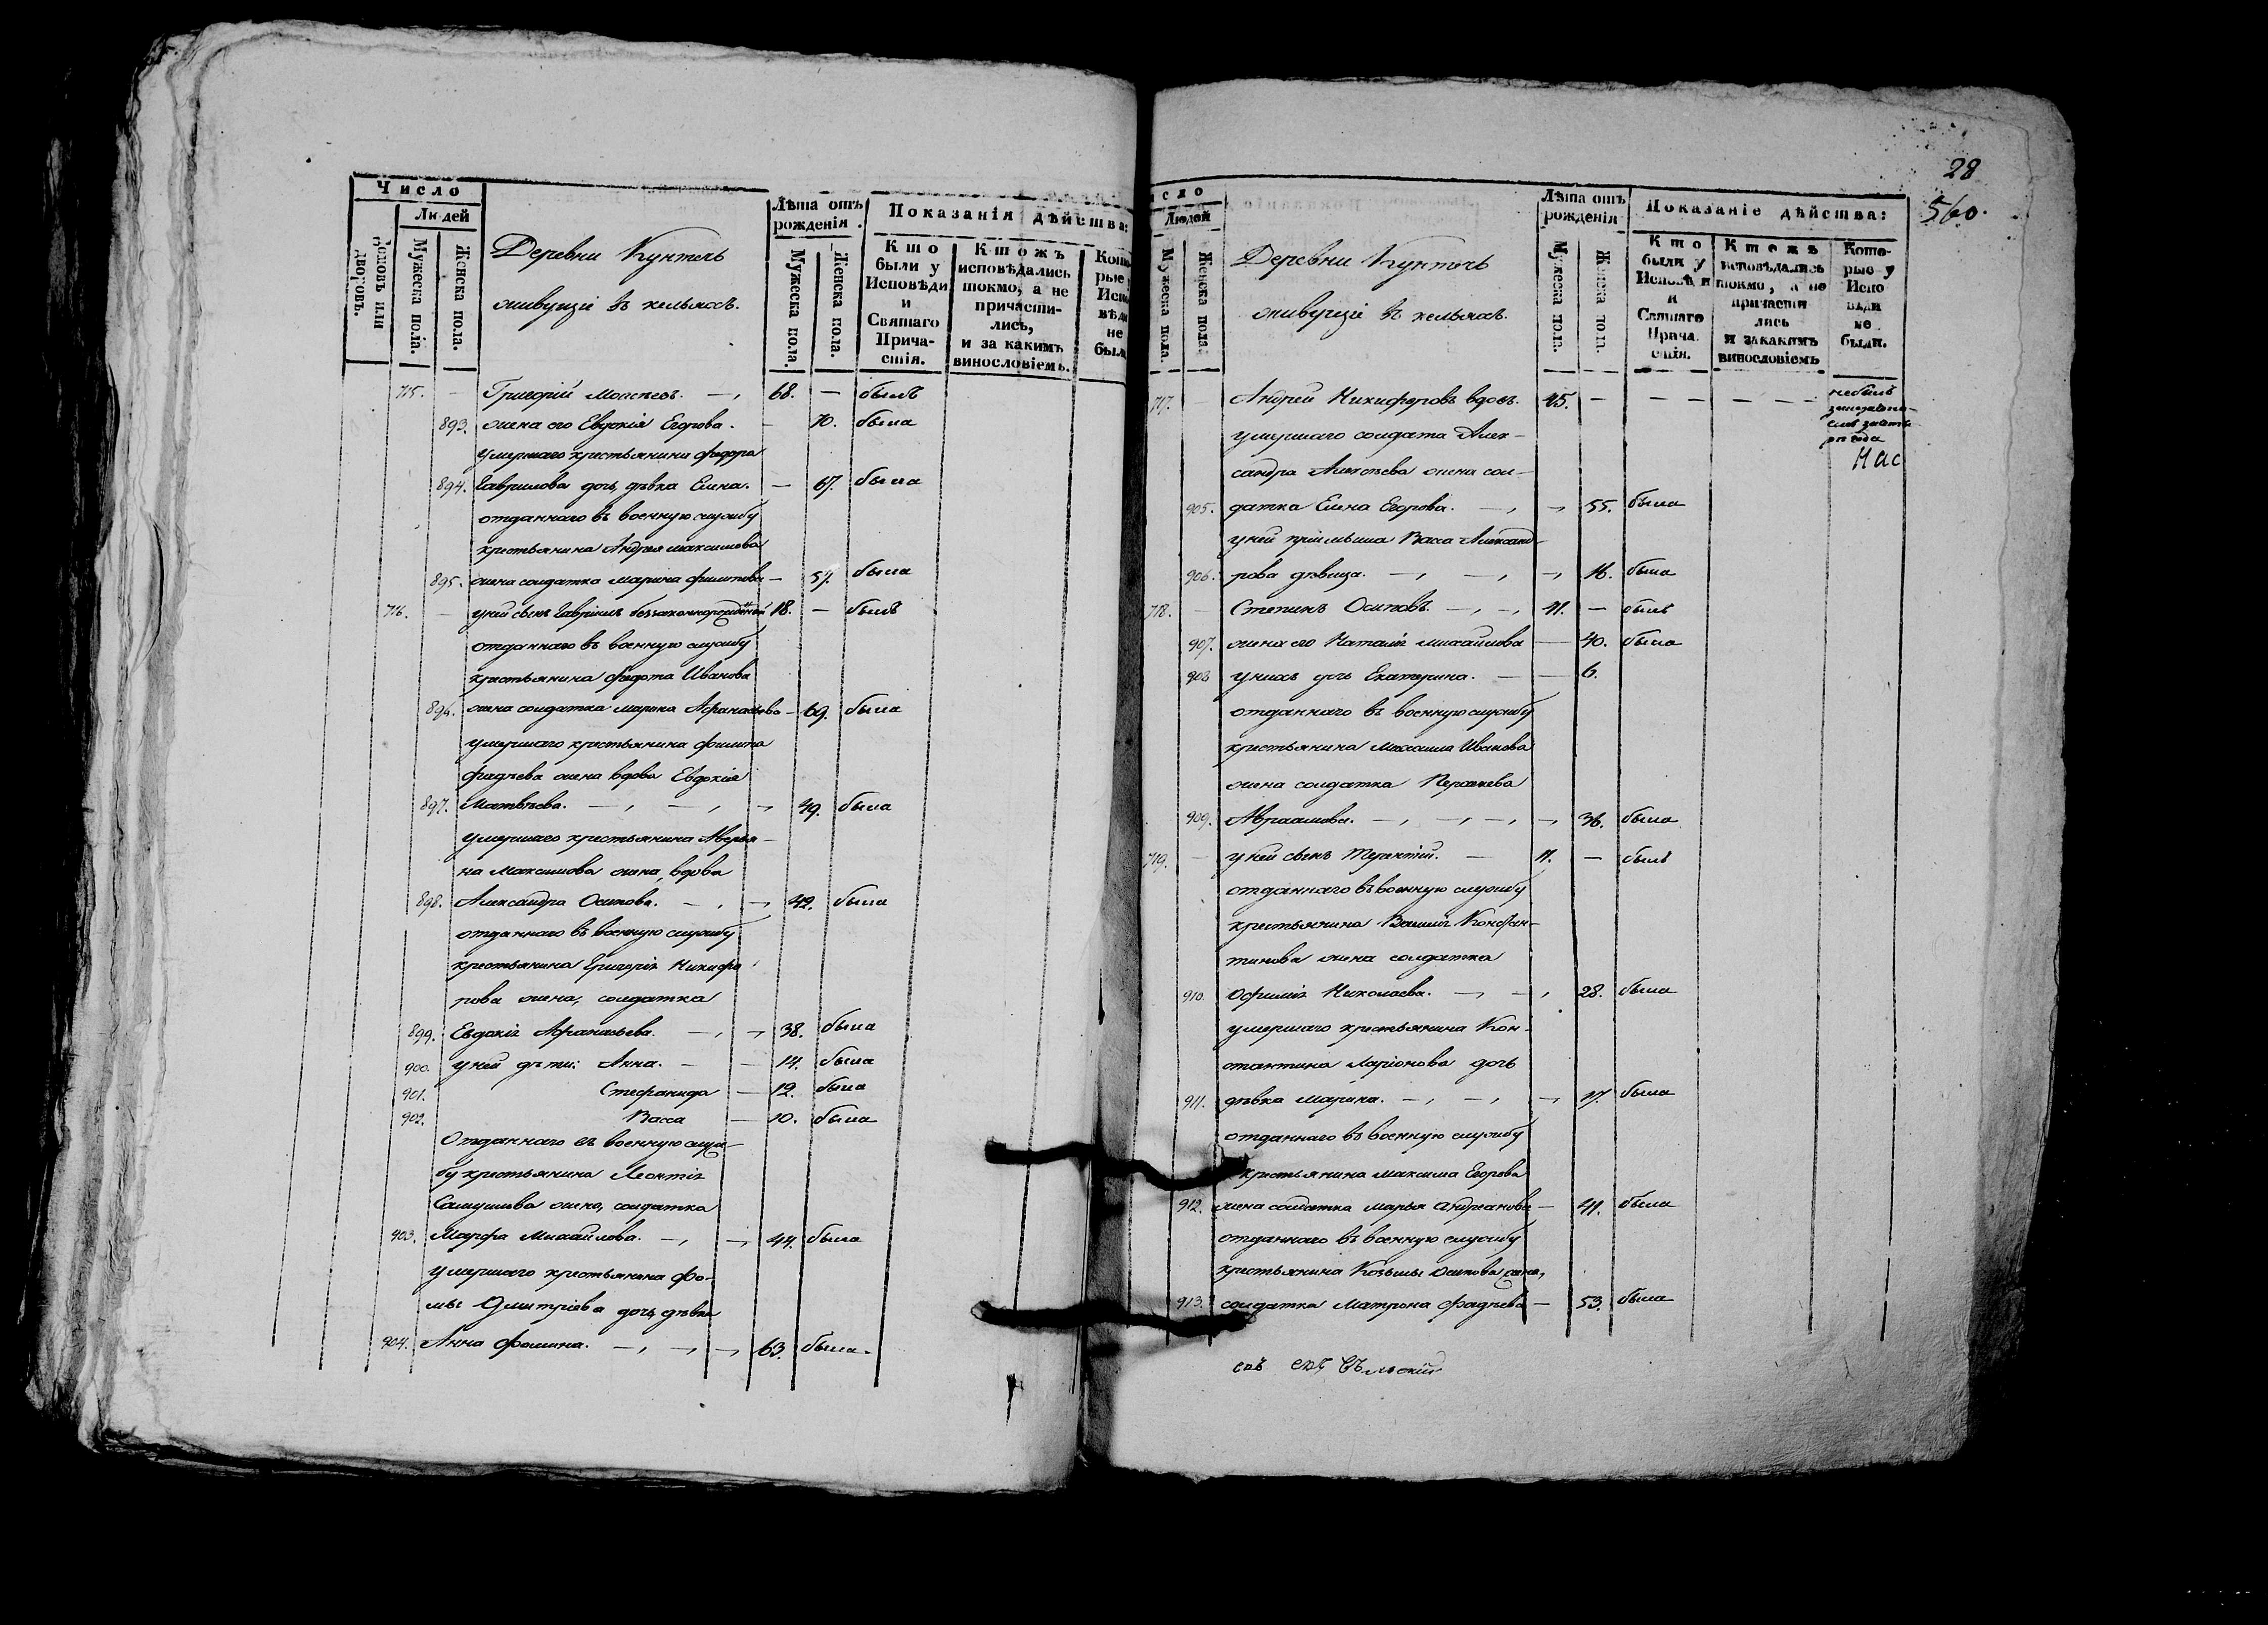 Число
Людей
Домовъ или дворовъ.
Мужеска пола.
Женска пола.
Деревни Кунточь
живущіе въ кельяхъ.
Лѣта отъ рожденія.
Мужеска пола.
Женска пола.
Показанія дѣйства:
Кто были у Исповѣди и Святаго Причастія.
Ктожъ исповѣдались токмо, а не причастились, и за какимъ винословіемъ.
715. — Григорій Моисеевъ. — 68. — былъ
893. жена его Евдокія Егорова. — 70. была
умершаго крестьянина Федора
894. Гаврилова дочь, дѣвка Елена. — 67. была
отданнаго въ военную службу
крестьянина Андрея Максимова
895. жена солдатка Марина Филипова — 57. была
716. — у ней сынъ Гавріилъ беззаконнорожденный 18. — былъ
отданнаго въ военную службу
крестьянина Федота Иванова
896. жена солдатка Марина Афанасьева — 69. была
умершаго крестьянина Филипа
Фадѣева жена вдова Евдокія
897. Матвѣева. — 49. была
умершаго крестьянина Аверья-
на Максимова жена, вдова
898. Александра Осипова. — 42. была
отданнаго въ военную службу
крестьянина Григорія Никифо
рова жена, солдатка
899. Евдокія Афанасьева. — 38. была
900. у ней дѣти: Анна. — 14. была
901. Стефанида — 12. была
902. Васса — 10. была
Отданнаго въ военную служ-
бу крестьянина Леонтія
Самуилова жена, солдатка
903. Марфа Михайлова. — 44. была
умершаго крестьянина Фо-
мы Дмитріева дочь, дѣвка
904. Анна Фомина. — 63. была.
28
560.
Людей
Мужеска пола.
Женска пола.
Деревни Кунточь
живущіе въ кельяхъ.
Лѣта отъ рожденія
Мужеска пола.
Женска пола.
Показаніе дѣйства:
Кто были у Исповѣди и Святаго Причастія.
Ктожъ исповѣдались токмо, а не причастились и за какимъ винословіемъ
Которые у Исповѣди не были.
717. — Андрей Никифоровъ вдовъ. 45. — — — — небылъ
умершаго солдата Алек-
сандра Алексѣева жена сол-
905. датка Елена Егорова. — 55. была
у ней пріемыша Васса Александ-
906. рова дѣвица. — 16. была
718. — Степанъ Осиповъ. — 41. — былъ
907. жена его Наталія Михайлова — 40. была
908 у нихъ дочь Екатерина. — 6.
отданнаго въ военную службу
крестьянина Михаила Иванова
жена солдатка
909. Авраамова. — 36. была
719. — у ней сынъ Терентій. — 11. — былъ
отданнаго въ военную службу
крестьянина Василія Констан-
тинова жена солдатка
910. Офимія Николаева. — 28. была
умершаго крестьянина Кон-
стантина Ларіонова дочь
911. дѣвка Марина. — 17. была
отданнаго въ военную службу
крестьянина Максима Егорова
912. жена солдатка Марья Андреанова — 41. была
отданнаго въ военную службу
крестьянина Козьмы Осипова жена,
913. солдатка Матрона Фадѣева — 53. была